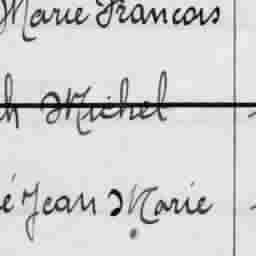 Marie Francois
h Michel
é Jean Marie